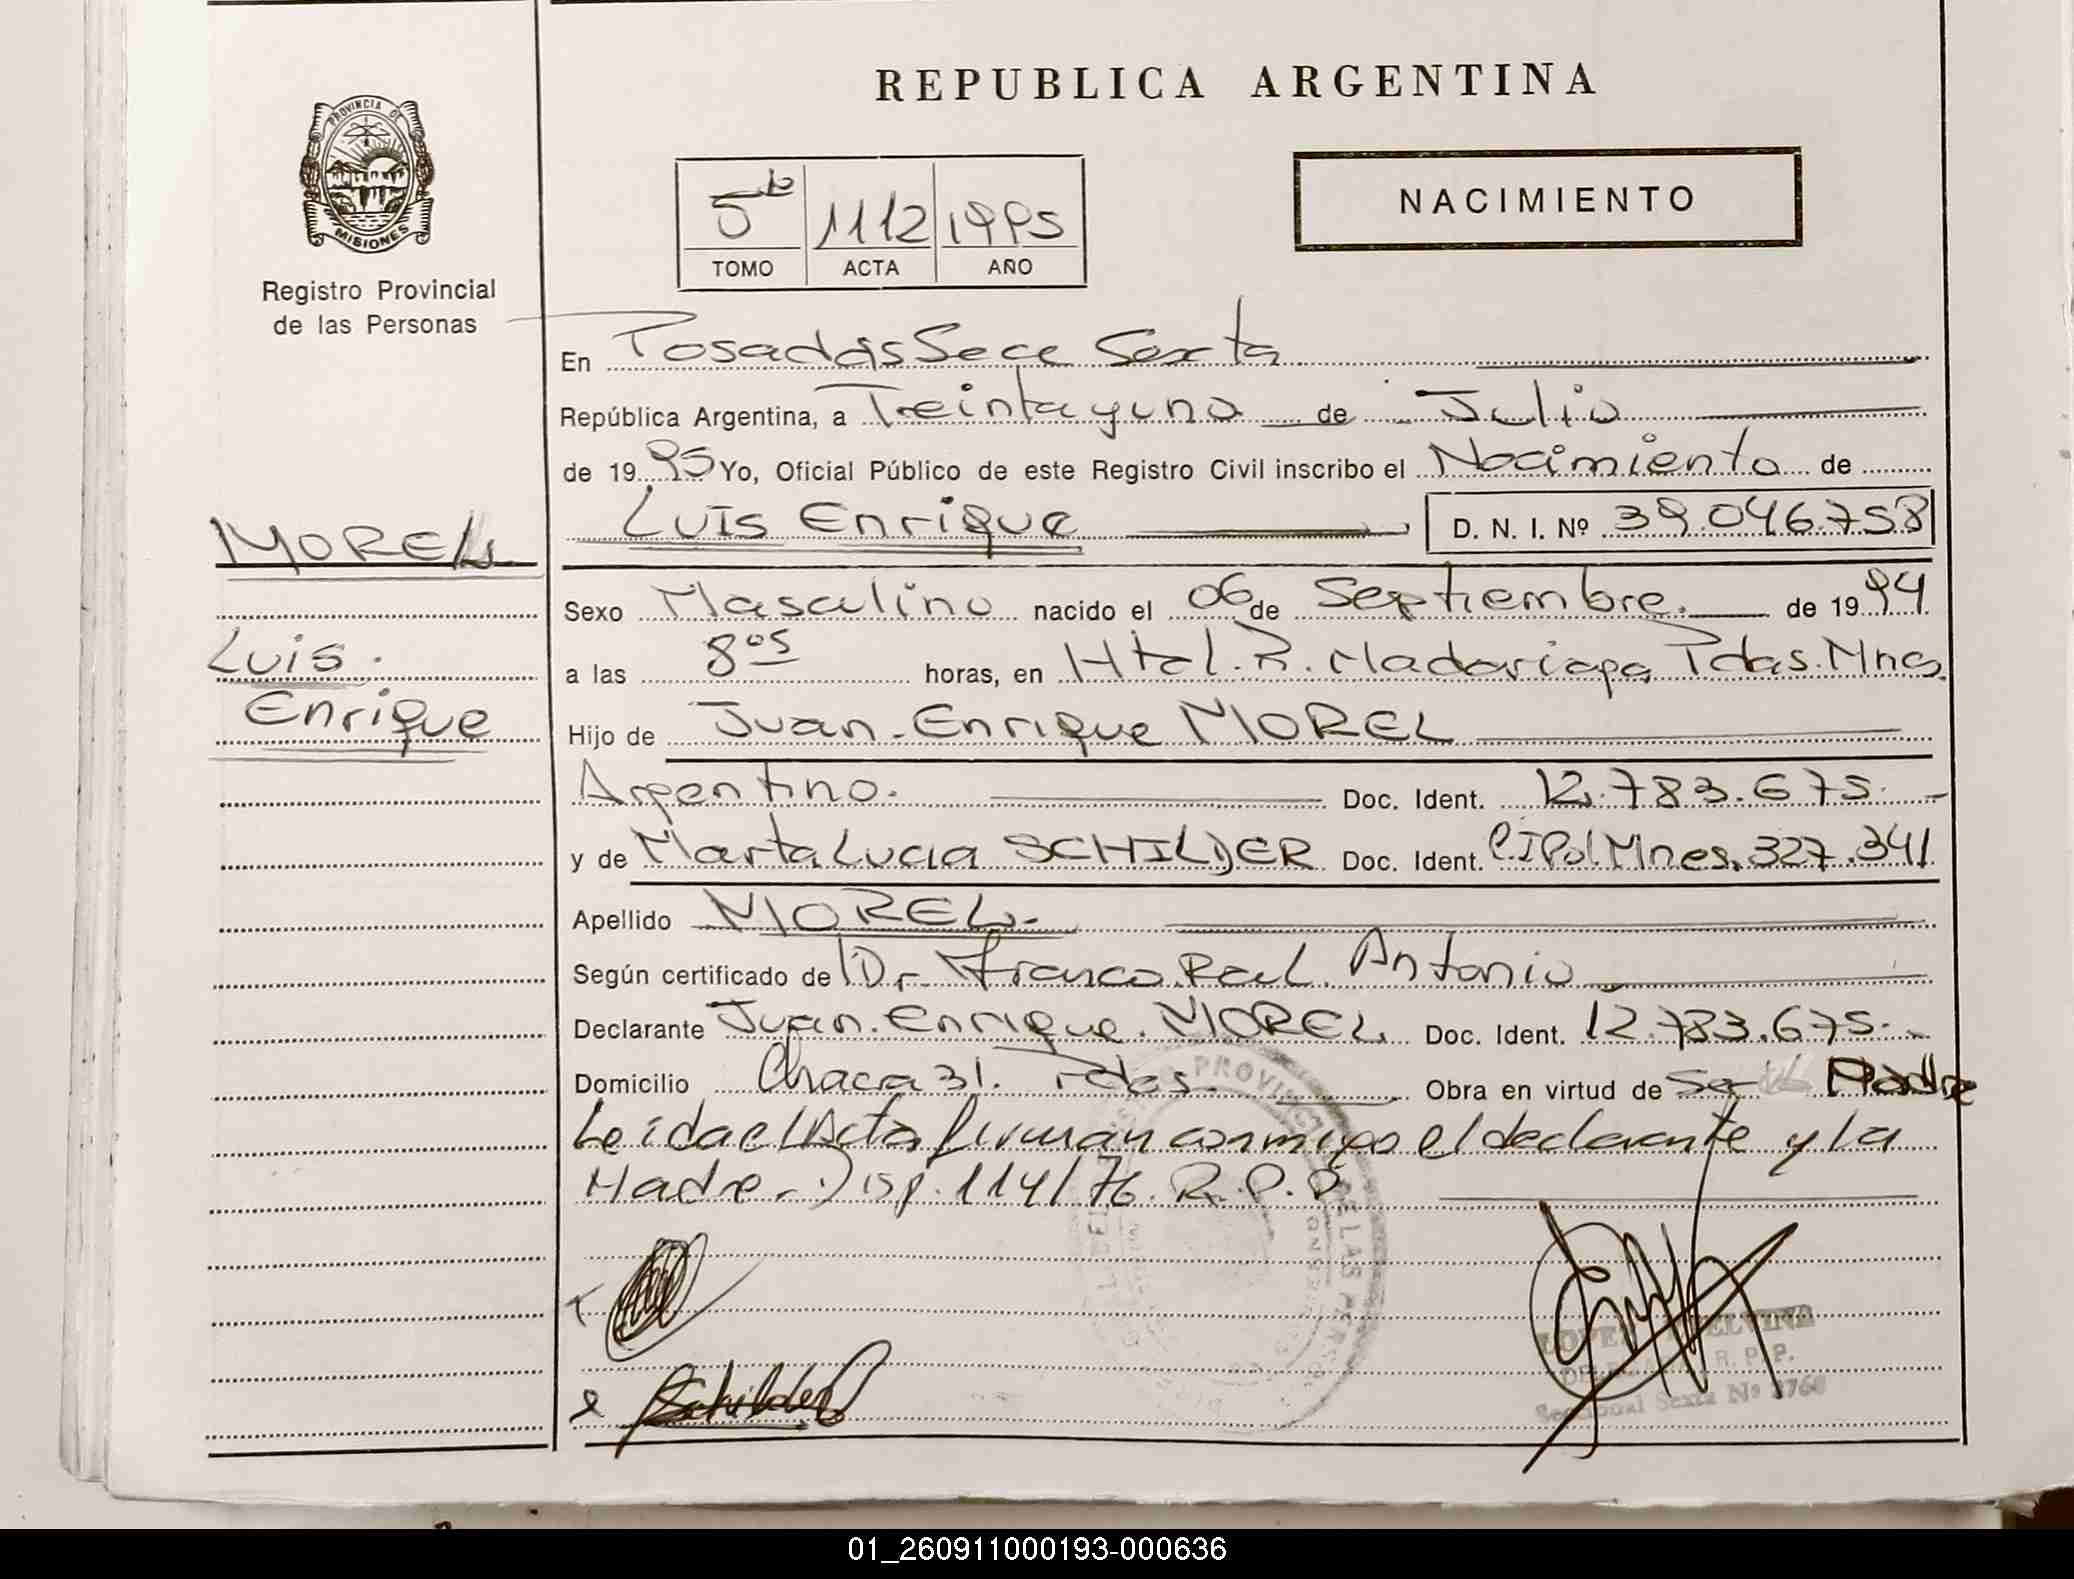 REPUBLICA ARGENTINA
PROVINCIA DE
MISIONES
Registro Provincial
de las Personas
5 b 1112 1995
TOMO ACTA AÑO
NACIMIENTO
En Posadas Secc Sexta
República Argentina, a Treinta y uno de Julio
de 19 95 Yo, Oficial Público de este Registro Civil inscribo el Nacimiento de
Luis Enrique D. N. I. Nº 39.046.758
MOREL
Luis
Enrique
Sexo Masculino nacido el 06 de Septiembre de 19 94
a las 8 os horas, en Htal. R. Madariaga Pdas. Mnes.
Hijo de Juan Enrique MOREL
Argentino. Doc. Ident. 12.783.675.
y de Marta Lucia SCHILDER Doc. Ident. C.I Pol Mnes. 327.341
Apellido MOREL.
Según certificado de Dr. Franco Raul Antonio
Declarante Juan Enrique MOREL Doc. Ident. 12.783.675.
Domicilio Chacra 31. Pdas. Obra en virtud de Ser Padre
Leida el Acta firman conmigo el declarante y la
Madre. Disp. 114/76. R.P.P.
Schilder
LOPEZ
R. P. P.
Seccional Sexta Nº
01_260911000193-000636